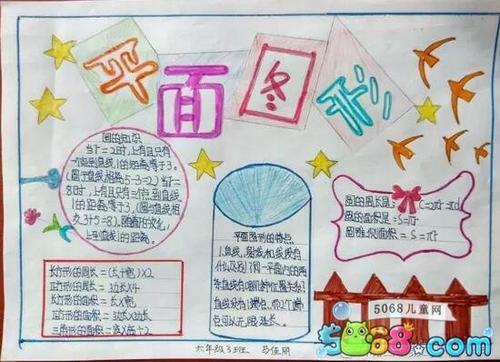 平面图形
圆的知识
当r=2时,上有且只有
一个点到直线l的距离等于3。
(圆心与直线相离5-3=2)当r=
8时,上有且只有三个点到直线
l的距离等于3,(圆与直线相
交3+5=8)。随着r的变化,
上到直线l的距离。
平面图形的特点
1.直线、射线和线段有
什么区别?同一平面内的两
条直线有哪几种位置关系?
直线没有端点,
可以无限延长。
圆的周长是:C=2πr=πd
圆的面积是:S=πr²
长方形的周长=(长+宽)×2
正方形的周长=边长×4
长方形的面积=长×宽
正方形的面积=边长×边长
三角形的面积=底×高÷2
六年级3班 马佳明
5068儿童网
5068.com